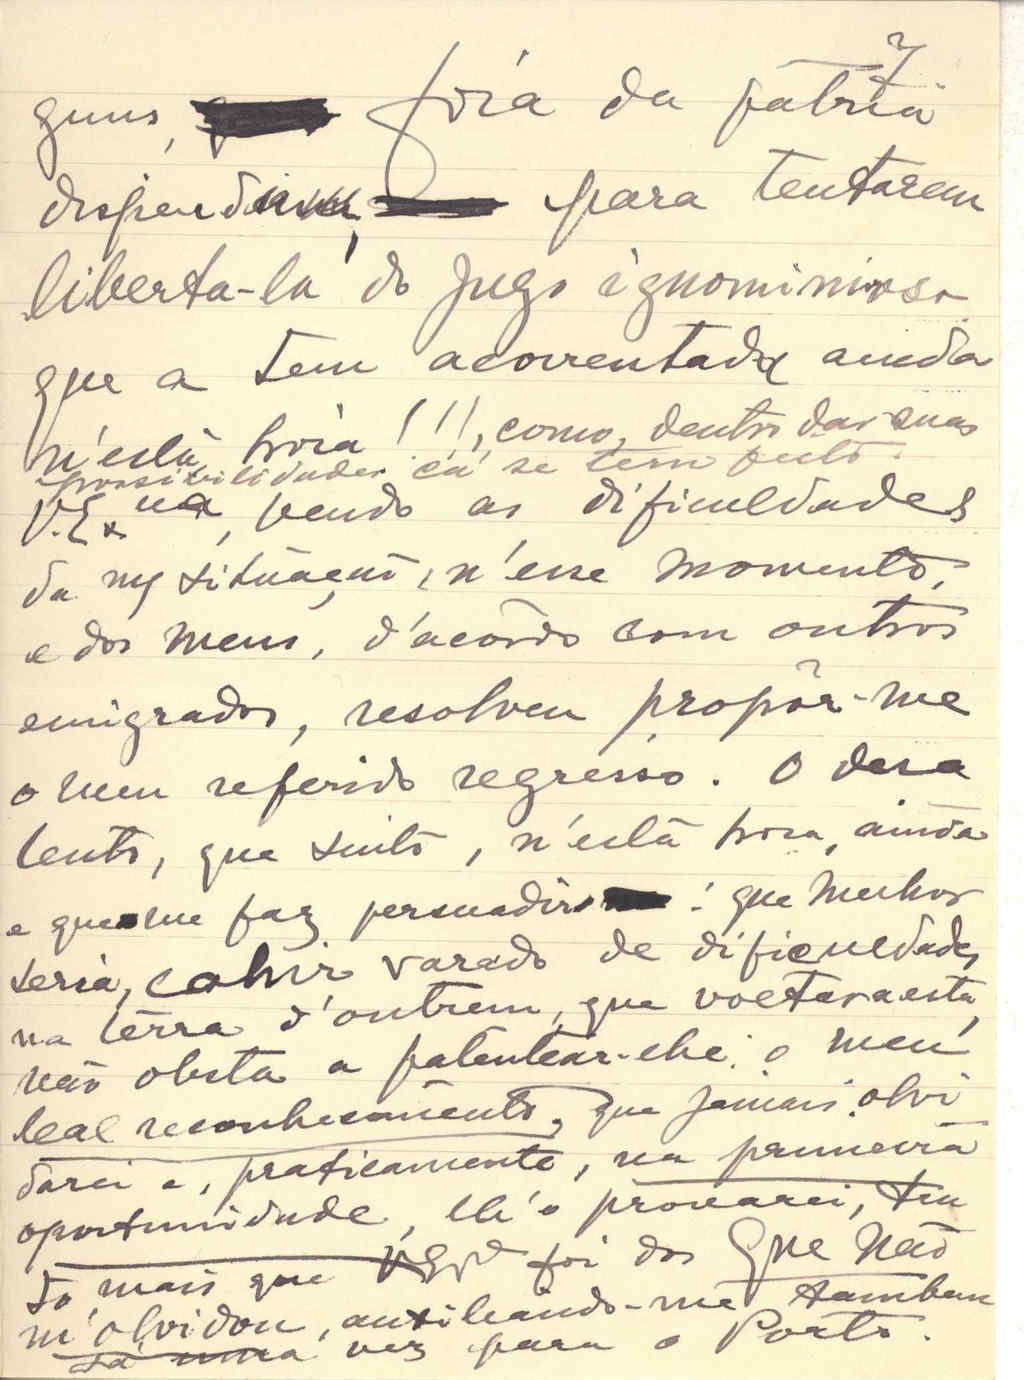 7
guns, fóra da pátria
dispendem, para tentarem
liberta-la do jugo ignominioso
que a tem acorrentada ainda
n'esta hora!!!, como, dentro das suas
possibilidades cá se tem feito.
V. Ex.ª, vendo as dificuldades
da m/ situação, n'esse momento,
e dos meus, d'acôrdo com outros
emigrados, resolveu propôr-me
o meu referido regresso. O desa
lento, que sinto, n'esta hora, ainda
e que me faz persuadir: que melhor
seria, cahir varado de dificuldades
na terra d'outrem, que voltar a esta,
não obsta a patentear-lhe o meu
leal reconhecimento, que jamais olvi
darei e, praticamente, na primeira
oportunidade, lh'o provarei, tan
to mais que V. Ex.ª foi dos que não
m'olvidou, auxiliando-me tambem
já uma vez para o Porto.